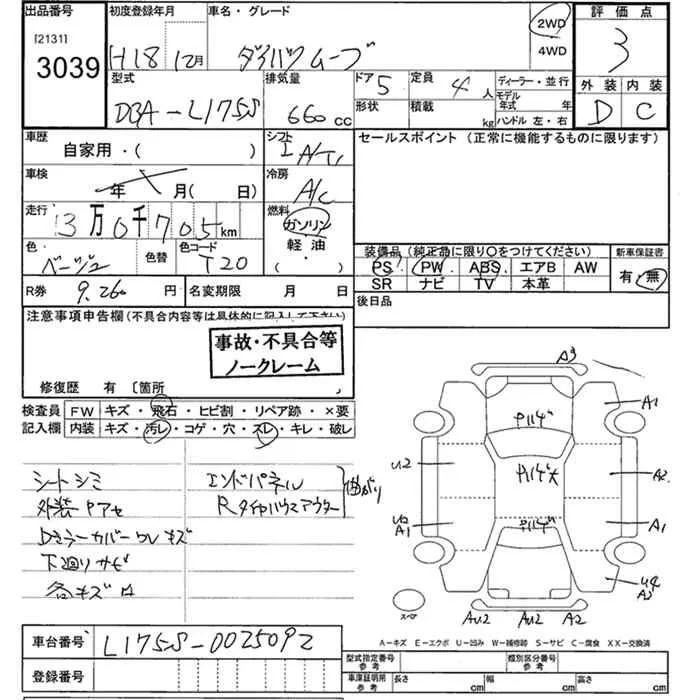 出品番号 初度登録年月 車名・グレード 2WD 評価点
[2131]
3039 H18 12月 ダイハツ ムーブ 4WD 3
型式 排気量 ドア 5 定員 4人 ディーラー・並行 外装 内装
DBA-L175S 660cc 形状 積載 kg モデル年式 年 D C
ハンドル 左・右
車歴 シフト セールスポイント (正常に機能するものに限ります)
自家用・( )
車検 冷房
年 月( 日) A/C
走行 燃料
3万0千705km ガソリン
軽油
・( )
色 色替 色コード 装備品 (純正品に限り○をつけてください) 新車保証書
ベージュ T20 PS PW ABS エアB AW 有・無
SR ナビ TV 本革
R券 9,260円 名変期限 月 日 後日品
注意事項申告欄(不具合内容等は具体的に記入して下さい)
事故・不具合等
ノークレーム
修復歴 有 〔箇所 〕
検査員 FW キズ・飛石・ヒビ割・リペア跡・×要
記入欄 内装 キズ・汚レ・コゲ・穴・スレ・キレ・破レ
シートシミ エンドパネル
外装アセ Rタイヤハウスアウター 曲がり
Dミラーカバーワレ キズ
下廻りサビ
各キズ
A3
A1
U2 A2
U2 A1 A1
U4 A3
スペア AU2 AU2 A2
A-キズ E-エクボ U-凹み W-補修跡 S-サビ C-腐食 XX-交換済
車台番号 L175S-0025092
型式指定番号 類別区分番号
登録番号 車庫証明用参考 長さ cm 幅 cm 高さ cm